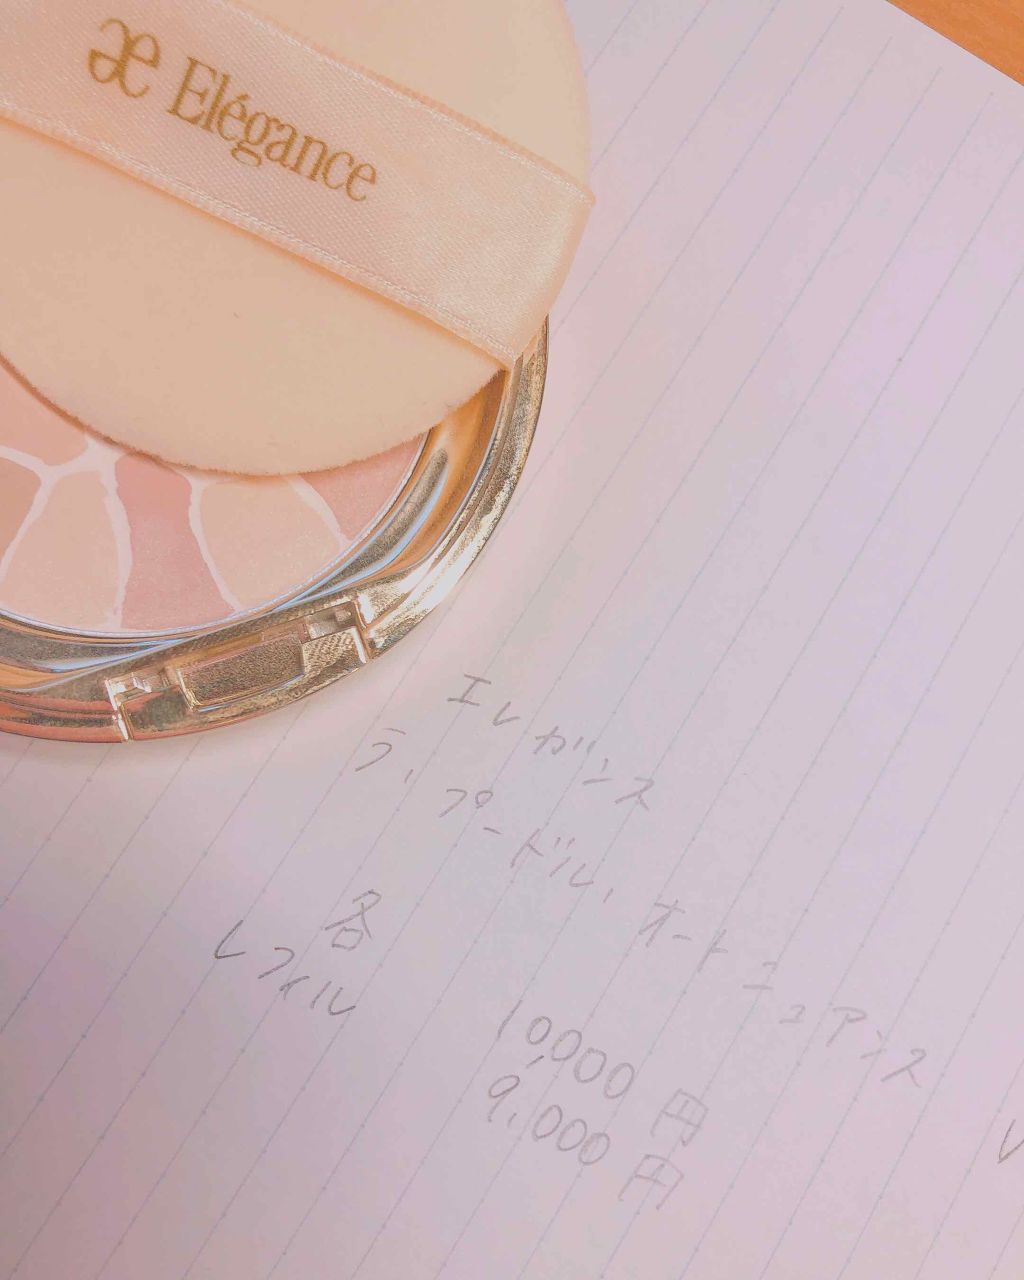 æ Elégance
エレガンス
ラ, プードル, オートニュアンス
各 10,000円
レフィル 9,000円